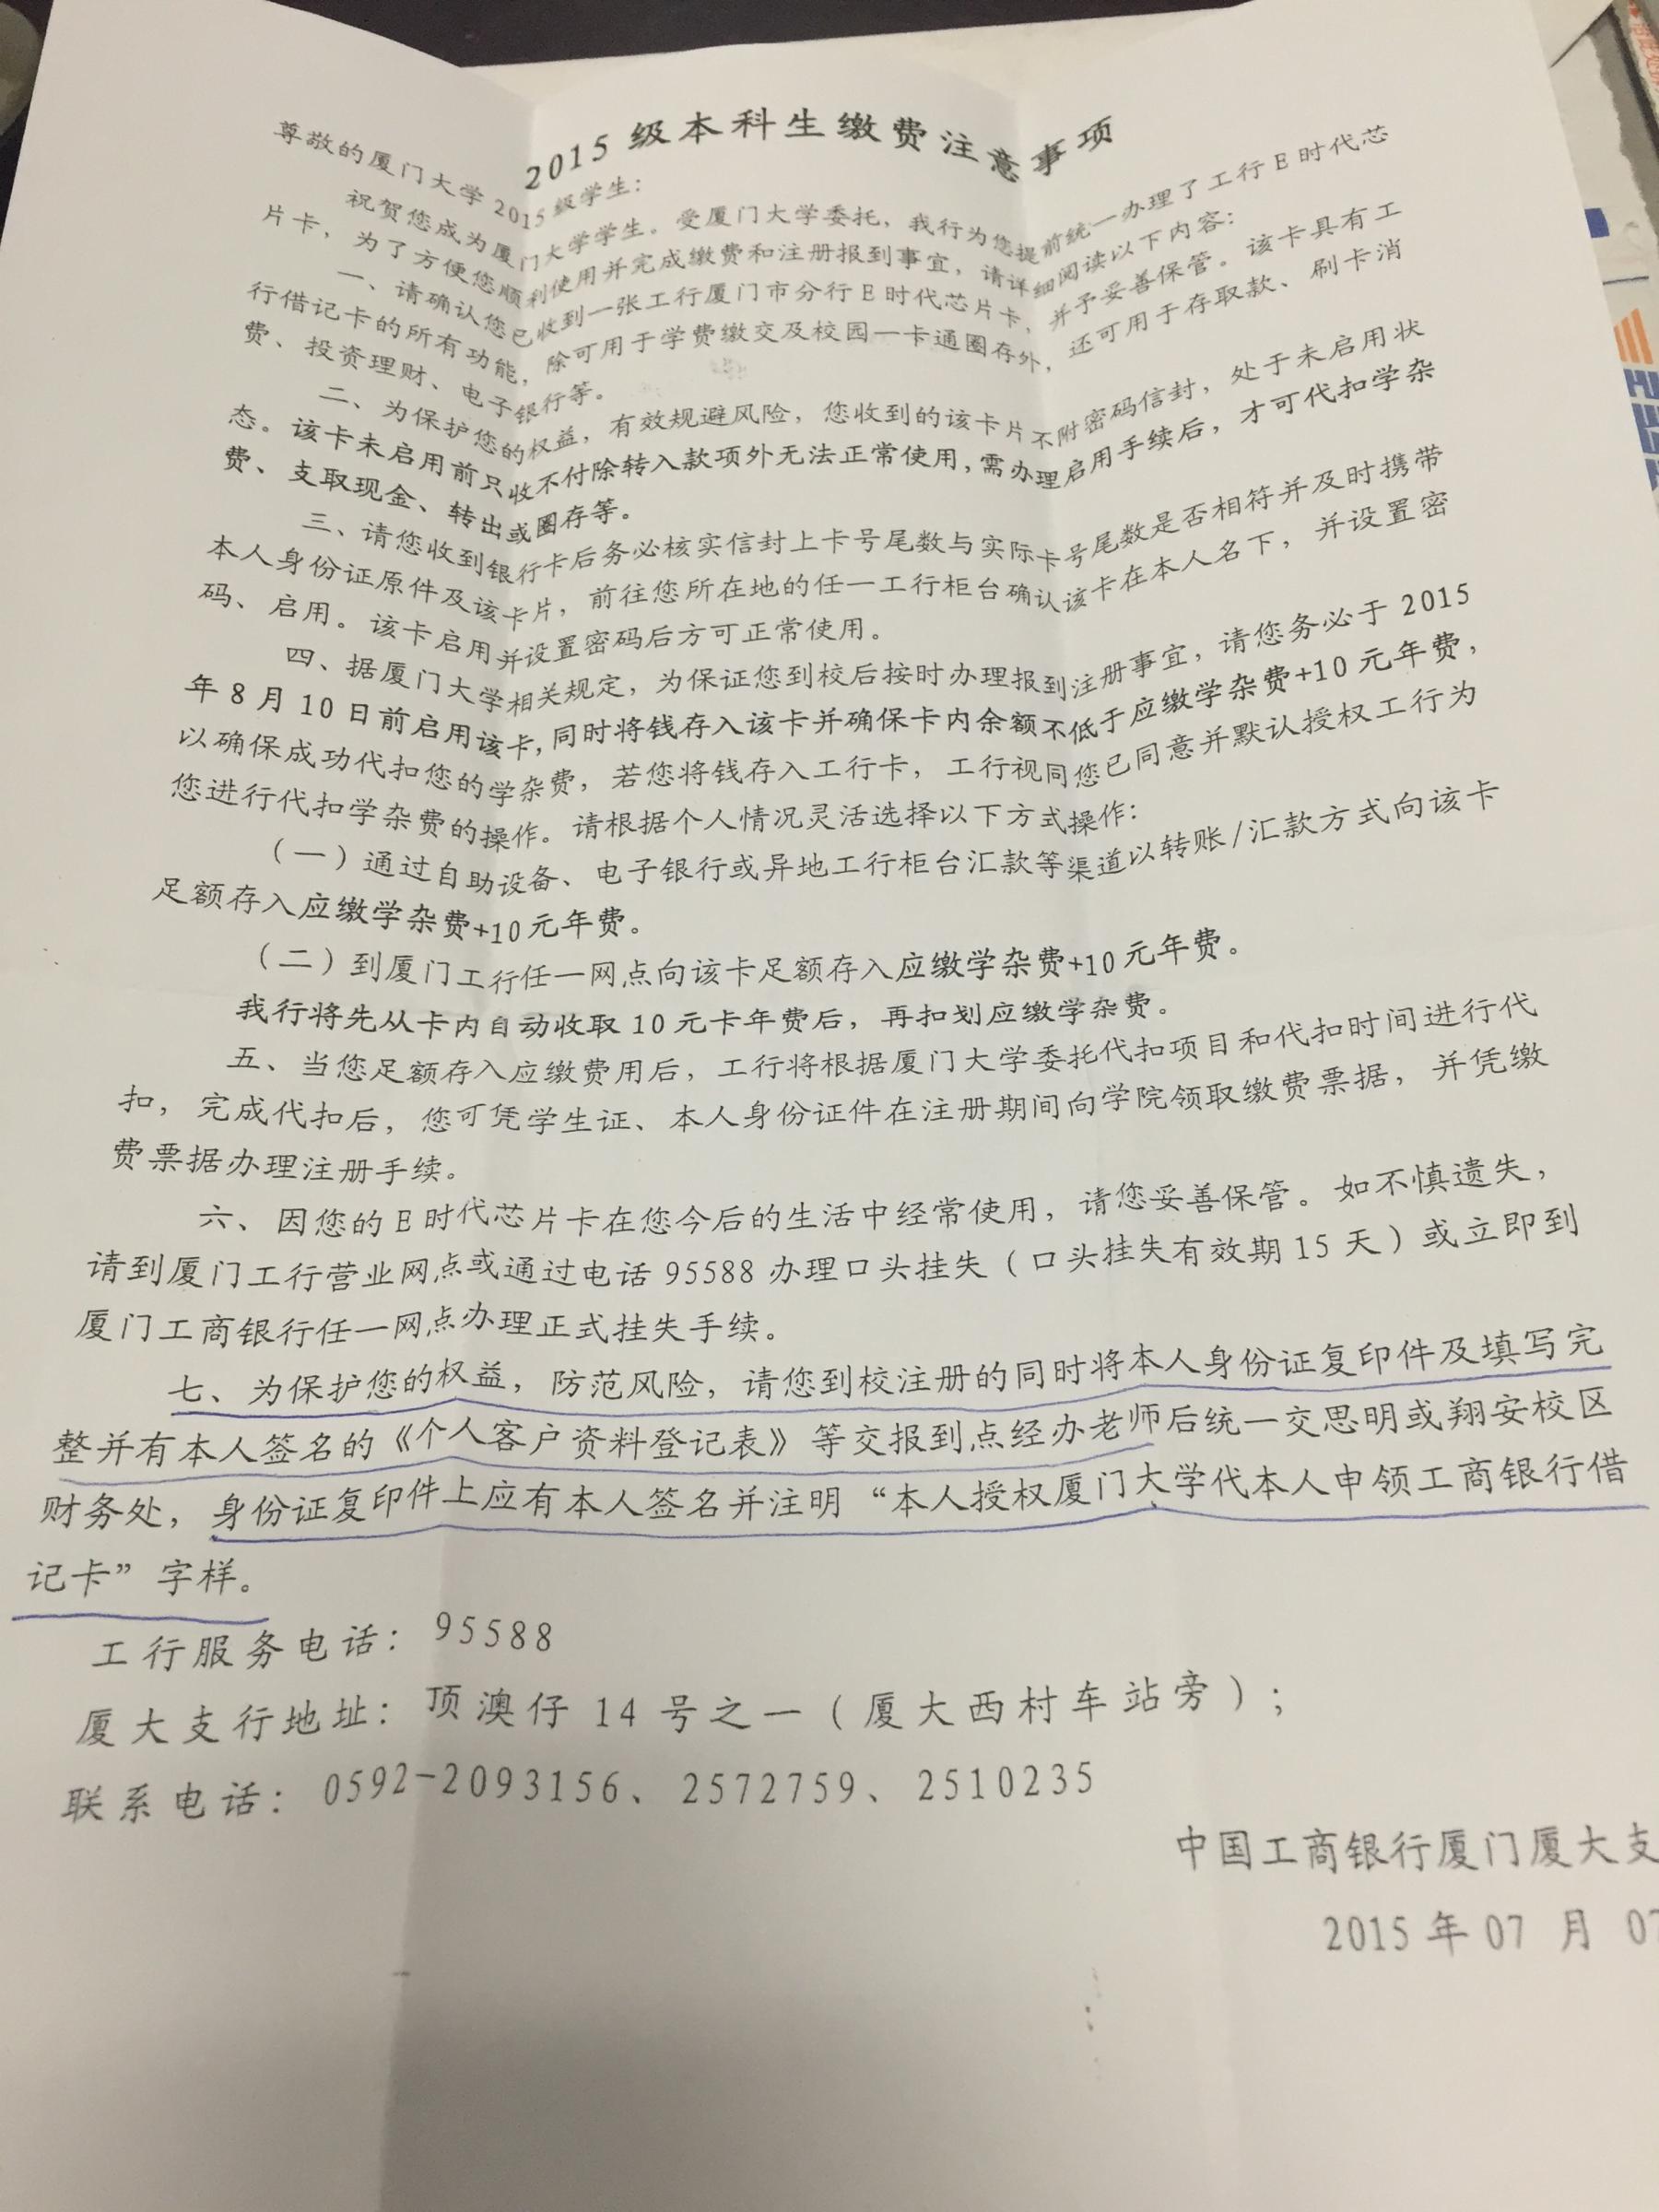 2015级本科生缴费注意事项
尊敬的厦门大学2015级学生：
祝贺您成为厦门大学学生。受厦门大学委托，我行为您提前统一办理了工行E时代芯
片卡，为了方便您顺利使用并完成缴费和注册报到事宜，请详细阅读以下内容：
一、请确认您已收到一张工行厦门市分行E时代芯片卡，并予妥善保管。该卡具有工
行借记卡的所有功能，除可用于学费缴交及校园一卡通圈存外，还可用于存取款、刷卡消
费、投资理财、电子银行等。
二、为保护您的权益，有效规避风险，您收到的该卡片不附密码信封，处于未启用状
态。该卡未启用前只收不付除转入款项外无法正常使用，需办理启用手续后，才可代扣学杂
费、支取现金、转出或圈存等。
三、请您收到银行卡后务必核实信封上卡号尾数与实际卡号尾数是否相符并及时携带
本人身份证原件及该卡片，前往您所在地的任一工行柜台确认该卡在本人名下，并设置密
码、启用。该卡启用并设置密码后方可正常使用。
四、据厦门大学相关规定，为保证您到校后按时办理报到注册事宜，请您务必于2015
年8月10日前启用该卡，同时将钱存入该卡并确保卡内余额不低于应缴学杂费+10元年费，
以确保成功代扣您的学杂费，若您将钱存入工行卡，工行视同您已同意并默认授权工行为
您进行代扣学杂费的操作。请根据个人情况灵活选择以下方式操作：
（一）通过自助设备、电子银行或异地工行柜台汇款等渠道以转账/汇款方式向该卡
足额存入应缴学杂费+10元年费。
（二）到厦门工行任一网点向该卡足额存入应缴学杂费+10元年费。
我行将先从卡内自动收取10元卡年费后，再扣划应缴学杂费。
五、当您足额存入应缴费用后，工行将根据厦门大学委托代扣项目和代扣时间进行代
扣，完成代扣后，您可凭学生证、本人身份证件在注册期间向学院领取缴费票据，并凭缴
费票据办理注册手续。
六、因您的E时代芯片卡在您今后的生活中经常使用，请您妥善保管。如不慎遗失，
请到厦门工行营业网点或通过电话95588办理口头挂失（口头挂失有效期15天）或立即到
厦门工商银行任一网点办理正式挂失手续。
七、为保护您的权益，防范风险，请您到校注册的同时将本人身份证复印件及填写完
整并有本人签名的《个人客户资料登记表》等交报到点经办老师后统一交思明或翔安校区
财务处，身份证复印件上应有本人签名并注明“本人授权厦门大学代本人申领工商银行借
记卡”字样。
工行服务电话：95588
厦大支行地址：顶澳仔14号之一（厦大西村车站旁）；
联系电话：0592-2093156、2572759、2510235
中国工商银行厦门厦大支
2015年07月07